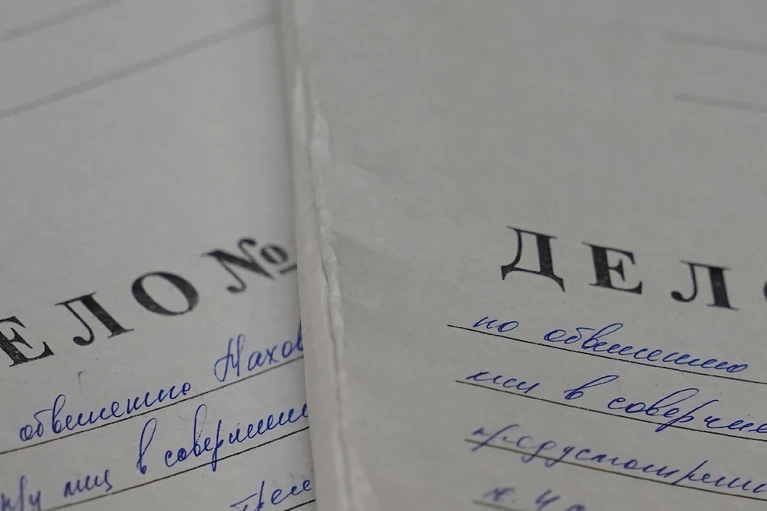 ЕЛО №
обвинению Махов
лиц в совершении
ДЕЛ
по обвинению
лиц в соверше
предусмотренн